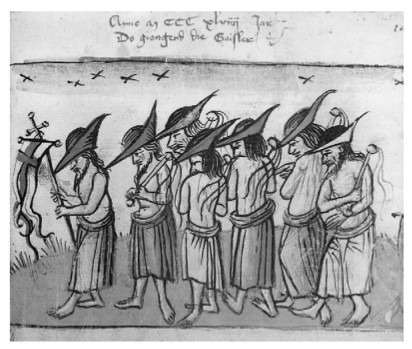 Anno m CCC xlviiij Jar
Do giengend die Gaisler